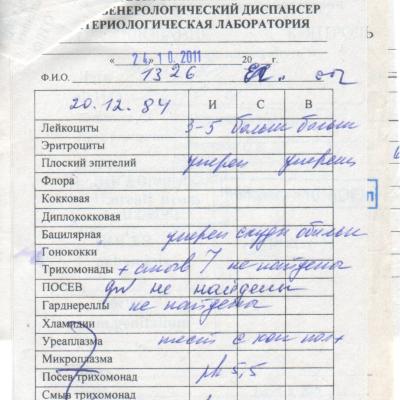 ВЕНЕРОЛОГИЧЕСКИЙ ДИСПАНСЕР
ТЕРИОЛОГИЧЕСКАЯ ЛАБОРАТОРИЯ
« 24 » 10.2011 20 г.
Ф.И.О. 1326
20.12.84 И С В
Лейкоциты 3-5 больш больш
Эритроциты
Плоский эпителий умерен умерен
Флора
Кокковая
Диплококковая
Бацилярная умерен скудн обильн
Гонококки
Трихомонады + смыв 7 не найдены
ПОСЕВ не найдены
Гарднереллы не найдены
Хламидии
Уреаплазма тест с кон пол+
Микроплазма
Посев трихомонад ph 5,5
Смыв трихомонад